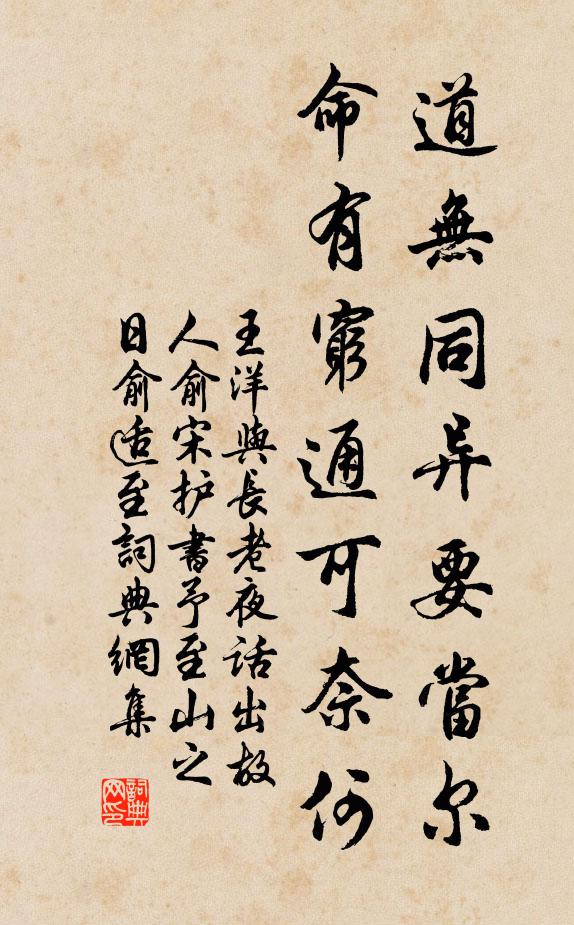 道無同异要當尔
命有窮通可奈何
王洋與長老夜話出故
人俞宋护書予至山之
日俞适至詞典網集
詞典
网印